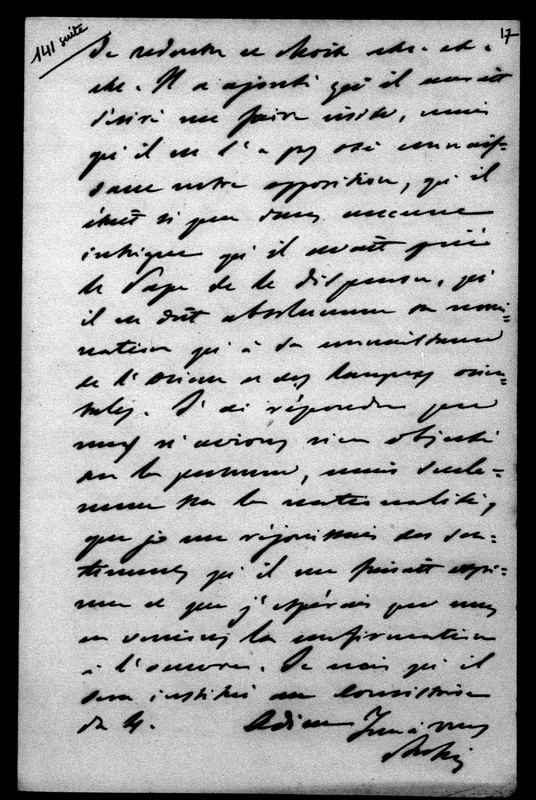 141 suite
17
de redouter ce choix etc. etc.
etc. Il a ajouté qu'il aurait
désiré me faire visite, mais
qu'il ne l'a pas osé connais=
sant notre opposition, qu'il
était si peu dans aucune
intrigue qu'il avait prié
le Pape de le dispenser, qu'
il ne doit absolument sa nomi=
nation qu'à sa connaissance
de l'Orient et des langues orien=
tales. J'ai répondu que
nous n'avions rien objecté
sur la personne, mais seule=
ment sur la nationalité,
que je me réjouissais des sen=
timents qu'il me faisait expri=
mer et que j'espérais que nous
en verrions la confirmation
à l'oeuvre. Je crois qu'il
sera institué au Consistoire
du 4. Adieu Tout à vous